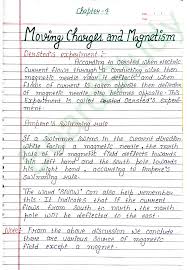 Chapter-4
Moving Charges and Magnetism
Oersted's experiment :-
According to Oersted when electric
current flows through a conducting wire then
magnetic needle show it deflect and when
of current is taken opposite then deflection
of magnetic needle also becomes opposite. This
Experiment is called Oersted's experi-
ment.
Ampere's swimming rule
If a swimmer swims in the current direction
while facing a magnetic needle, the north
pole of the magnetic field deflects towards
his left hand and the south pole towards
his right hand, according to Ampere's
swimming rule.
The word 'SNOW' can also help remember
this. It indicates that if the current
flows from South to north, the north
pole will be deflected to the west.
Note: From the above discussion we conclude
there are various source of magnetic
field except a magnet.